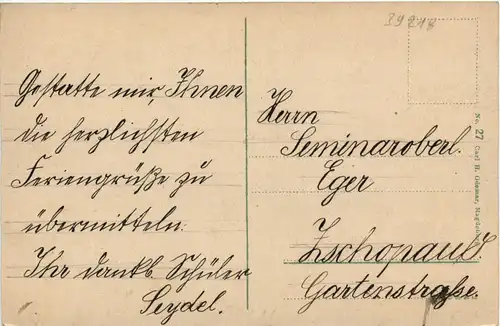 39218
Gestatte mir, Ihnen
die herzlichsten
Feriengrüße zu
übermitteln.
Ihr dankb. Schüler
Seydel.
Herrn
Seminaroberl.
Eger
Zschopau
Gartenstraße.
No. 27 Carl H. Gössner, Magdeburg